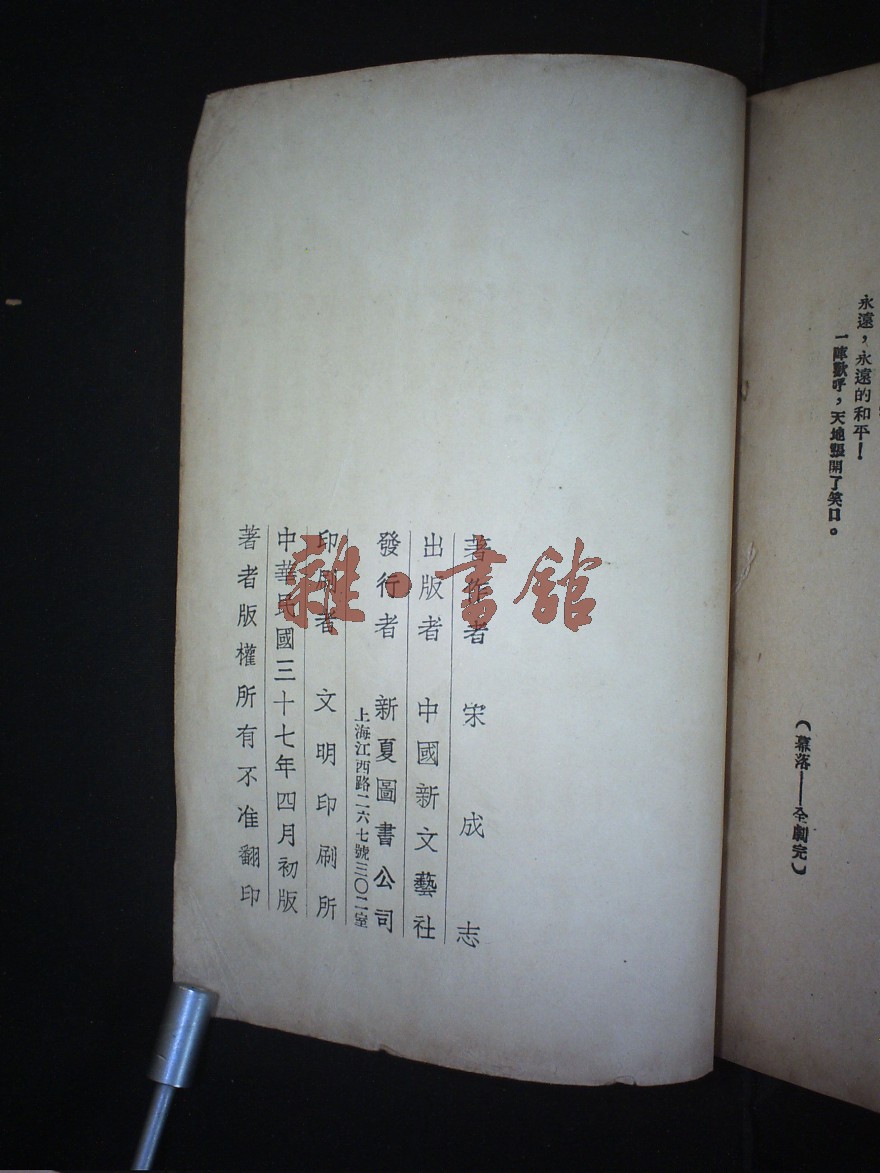 永遠，永遠的和平！
一陣歡呼，天地張開了笑口。
（幕落——全劇完）
著作者 宋成志
出版者 中國新文藝社
發行者 新夏圖書公司
上海江西路二六七號三〇二室
印刷者 文明印刷所
中華民國三十七年四月初版
著者版權所有不准翻印
雜·書館